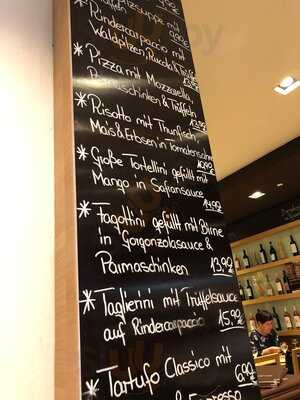 Rindercarpaccio mit
Waldpilzen, Rucola &
* Pizza mit Mozzarella
Parmaschinken & Trüffeln
13,99
* Risotto mit Thunfisch
Mais & Erbsen in Tomatensahne
10,90
* Große Tortellini gefüllt mit
Mango in Safransauce
14,99
* Fagottini gefüllt mit Birne
in Gorgonzolasauce &
Parmaschinken 13,99
* Taglierini mit Trüffelsauce
auf Rindercarpaccio 15,99
* Tartufo Classico mit
6,90
& Espresso